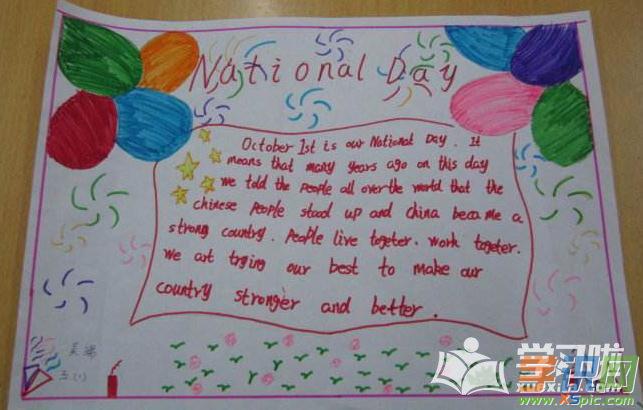 National Day
October 1st is our National Day. It
means that many years ago on this day
we told the people all over the world that the
chinese people stood up and china became a
strong country. People live togeter. work togeter.
we art trying our best to make our
country stronger and better.
学习啦
www.xspic.com